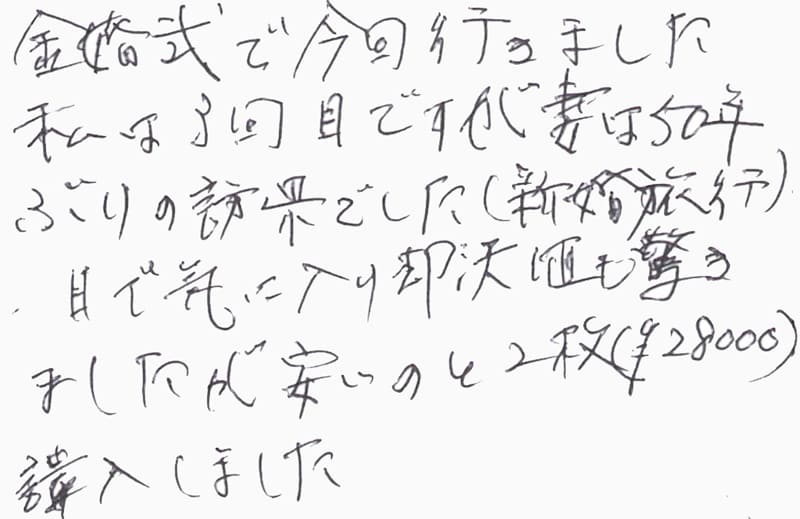 金婚式で今回行きました
私は3回目ですが妻は50年
ぶりの訪県でした(新婚旅行)
一目で気に入り却決値も驚き
ましたが安いのを2枚(¥28000)
講入しました